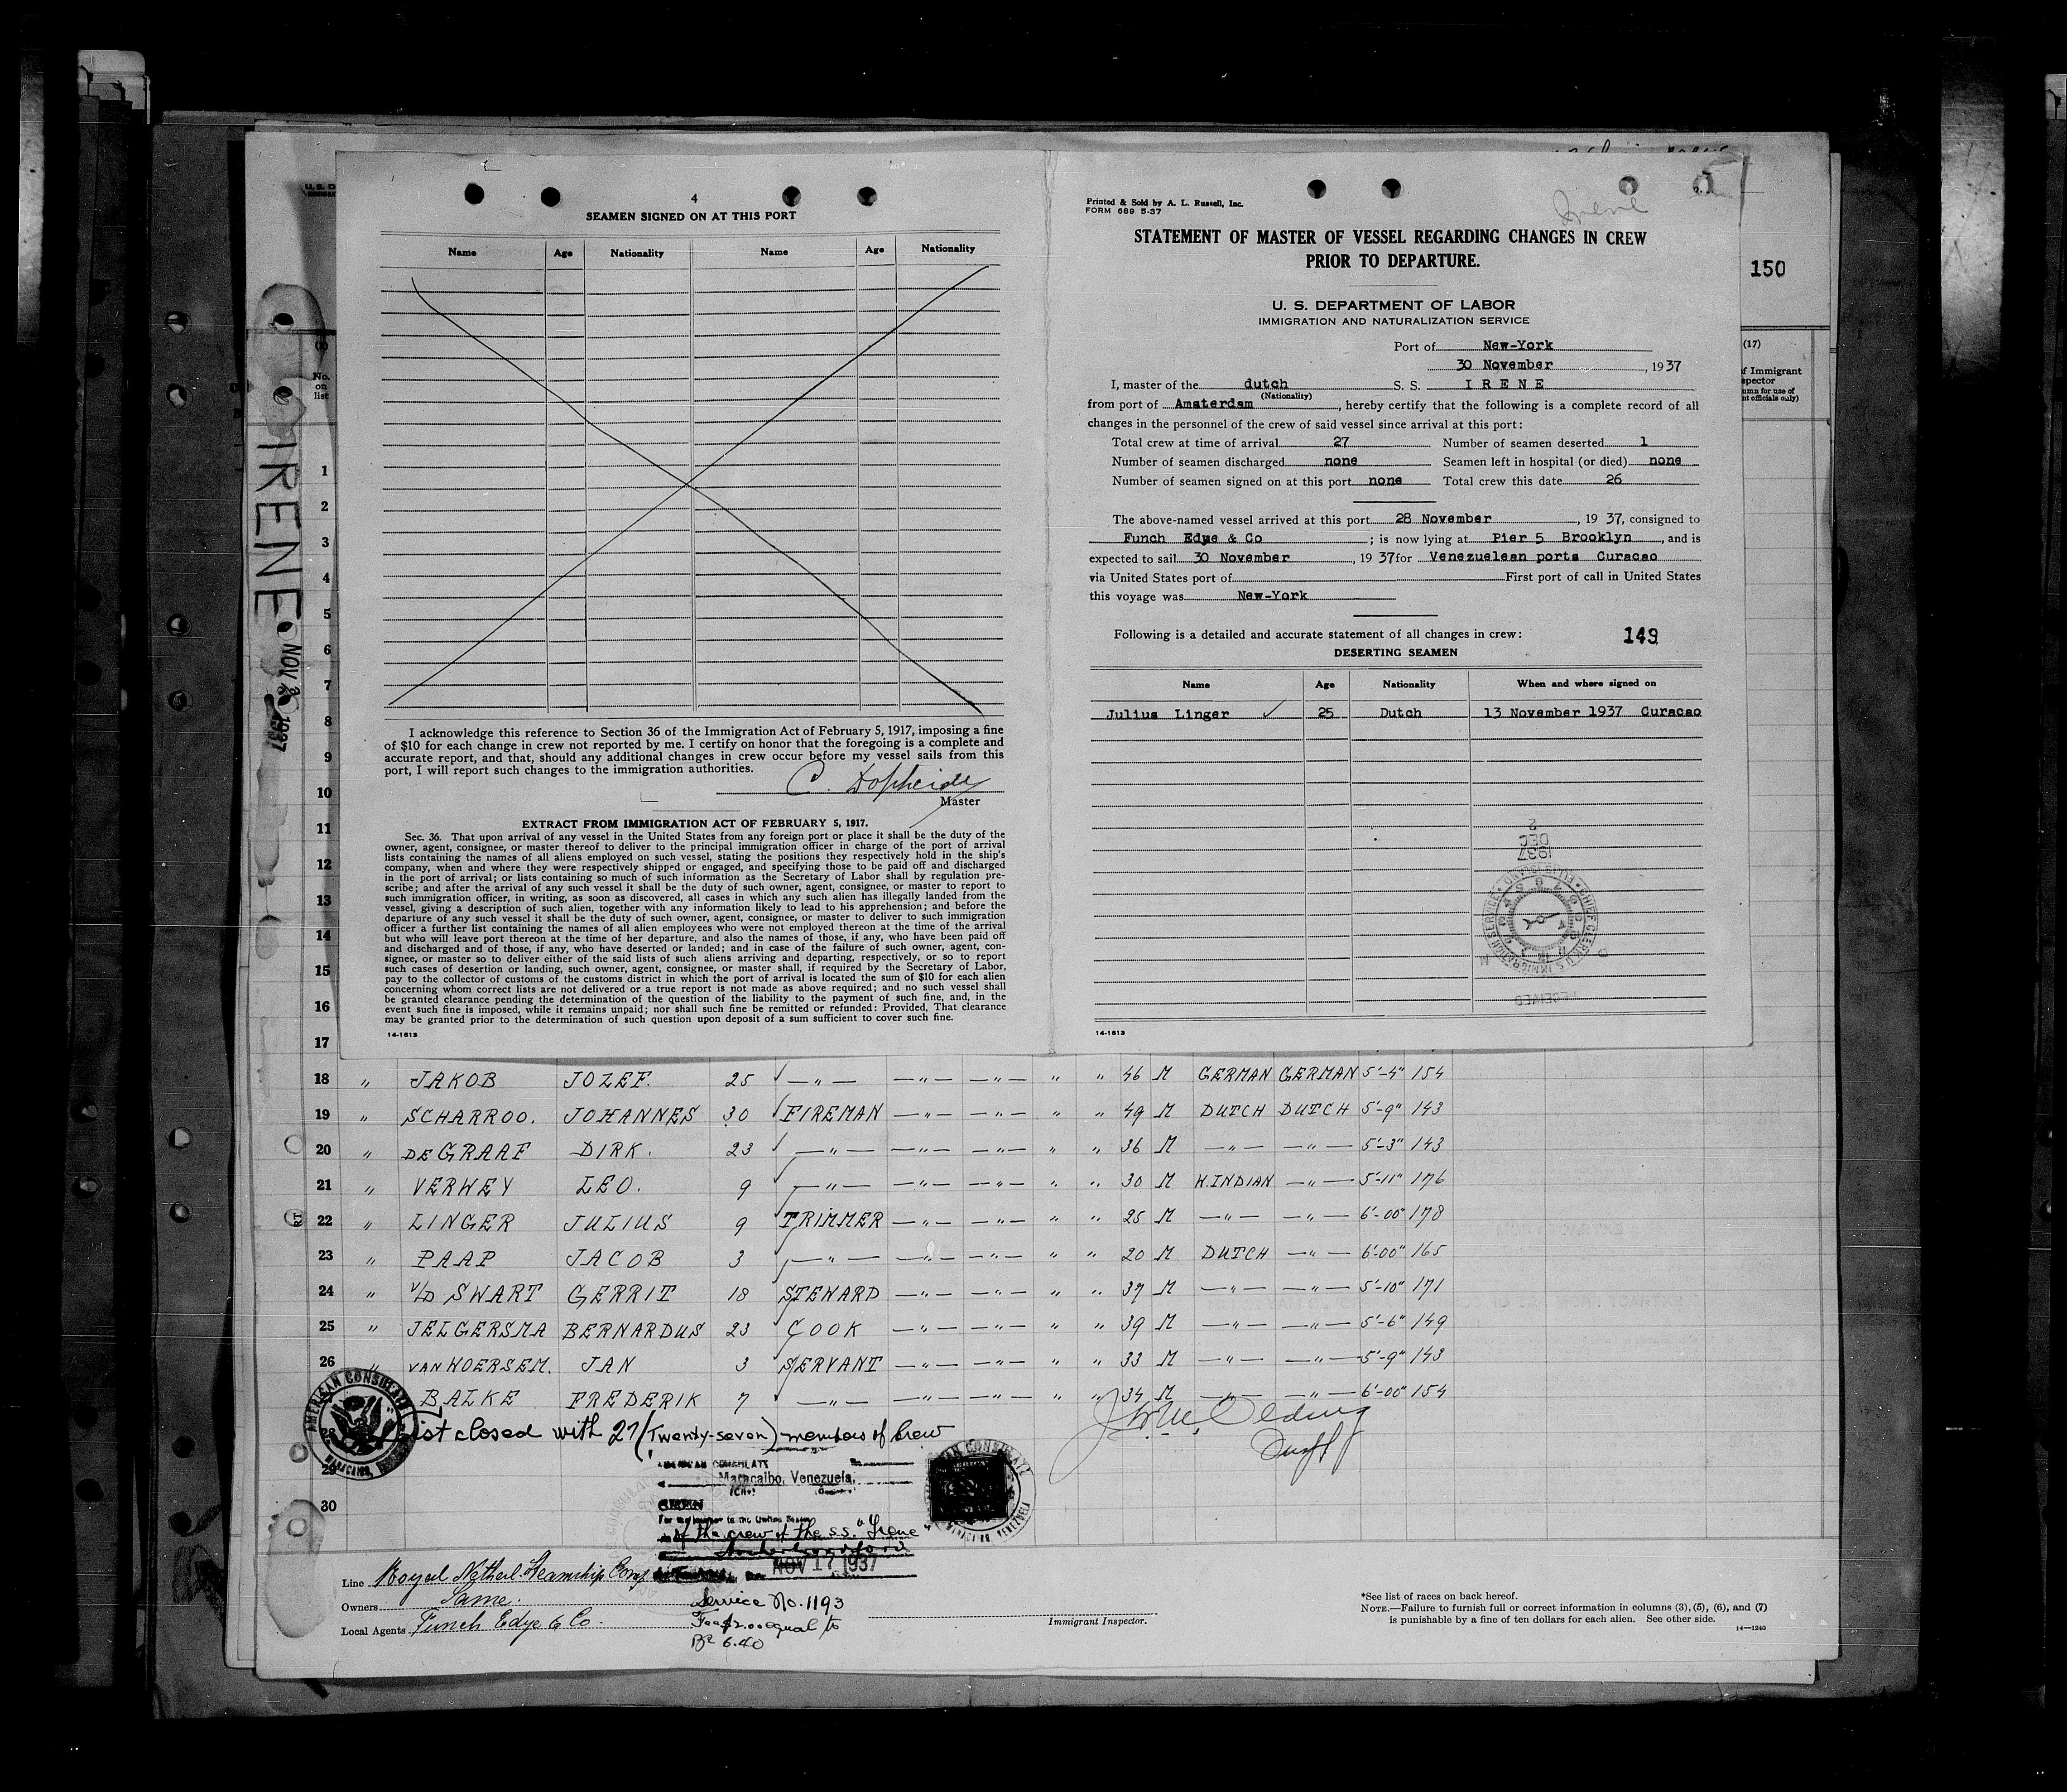 4
SEAMEN SIGNED ON AT THIS PORT
Name Age Nationality Name Age Nationality
I acknowledge this reference to Section 36 of the Immigration Act of February 5, 1917, imposing a fine
of $10 for each change in crew not reported by me. I certify on honor that the foregoing is a complete and
accurate report, and that, should any additional changes in crew occur before my vessel sails from this
port, I will report such changes to the immigration authorities.
C. Dopheide
Master
EXTRACT FROM IMMIGRATION ACT OF FEBRUARY 5, 1917.
Sec. 36. That upon arrival of any vessel in the United States from any foreign port or place it shall be the duty of the
owner, agent, consignee, or master thereof to deliver to the principal immigration officer in charge of the port of arrival
lists containing the names of all aliens employed on such vessel, stating the positions they respectively hold in the ship's
company, when and where they were respectively shipped or engaged, and specifying those to be paid off and discharged
in the port of arrival; or lists containing so much of such information as the Secretary of Labor shall by regulation pre-
scribe; and after the arrival of any such vessel it shall be the duty of such owner, agent, consignee, or master to report to
such immigration officer, in writing, as soon as discovered, all cases in which any such alien has illegally landed from the
vessel, giving a description of such alien, together with any information likely to lead to his apprehension; and before the
departure of any such vessel it shall be the duty of such owner, agent, consignee, or master to deliver to such immigration
officer a further list containing the names of all alien employees who were not employed thereon at the time of the arrival
but who will leave port thereon at the time of her departure, and also the names of those, if any, who have been paid off
and discharged and of those, if any, who have deserted or landed; and in case of the failure of such owner, agent, con-
signee, or master so to deliver either of the said lists of such aliens arriving and departing, respectively, or so to report
such cases of desertion or landing, such owner, agent, consignee, or master shall, if required by the Secretary of Labor,
pay to the collector of customs of the customs district in which the port of arrival is located the sum of $10 for each alien
concerning whom correct lists are not delivered or a true report is not made as above required; and no such vessel shall
be granted clearance pending the determination of the question of the liability to the payment of such fine, and, in the
event such fine is imposed, while it remains unpaid; nor shall such fine be remitted or refunded: Provided, That clearance
may be granted prior to the determination of such question upon deposit of a sum sufficient to cover such fine.
14-1613
Printed & Sold by A. L. Russell, Inc.
FORM 689 5-37
Irene
STATEMENT OF MASTER OF VESSEL REGARDING CHANGES IN CREW
PRIOR TO DEPARTURE.
U. S. DEPARTMENT OF LABOR
IMMIGRATION AND NATURALIZATION SERVICE
Port of New-York
30 November, 1937
I, master of the dutch S. S. I R E N E
(Nationality)
from port of Amsterdam, hereby certify that the following is a complete record of all
changes in the personnel of the crew of said vessel since arrival at this port:
Total crew at time of arrival 27 Number of seamen deserted 1
Number of seamen discharged none Seamen left in hospital (or died) none
Number of seamen signed on at this port none Total crew this date 26
The above-named vessel arrived at this port 28 November, 19 37, consigned to
Funch Edye & Co; is now lying at Pier 5 Brooklyn, and is
expected to sail 30 November, 19 37 for Venezuelean ports Curacao
via United States port of First port of call in United States
this voyage was New-York
Following is a detailed and accurate statement of all changes in crew: 149
DESERTING SEAMEN
Name Age Nationality When and where signed on
Julius Linger ✓ 25 Dutch 13 November 1937 Curacao
RECEIVED
1937
DEC
2
14-1613
150
(17)
IRENE
NOV 1937
No.
on
list
1
2
3
4
5
6
7
8
9
10
11
12
13
14
15
16
17
18 " JAKOB JOZEF. 25 ✓ —"— —"— —"— " " 46 M GERMAN GERMAN 5'-4" 154
19 " SCHARROO. JOHANNES 30 ✓ FIREMAN —"— —"— " " 49 M DUTCH DUTCH 5'-9" 143
20 " DE GRAAF DIRK. 23 ✓ —"— —"— —"— " " 36 M —"— —"— 5'-3" 143
21 " VERWEY LEO. 9 ✓ —"— —"— —"— " " 30 M W.INDIAN —"— 5'-11" 176
22 " LINGER JULIUS 9 ✓ TRIMMER —"— —"— " " 25 M —"— —"— 6'-00" 178
23 " PAAP JACOB 3 ✓ —"— —"— —"— " " 20 M DUTCH —"— 6'-00" 165
24 " V/D SWART GERRIT 18 ✓ STEWARD —"— —"— " " 37 M —"— —"— 5'-10" 171
25 " JELGERSMA BERNARDUS 23 ✓ COOK —"— —"— " " 39 M —"— —"— 5'-6" 149
26 " VAN WOERSEM. JAN 3 ✓ SERVANT —"— —"— " " 33 M —"— —"— 5'-9" 143
BALKE FREDERIK 7 ✓ —"— —"— —"— " " 34 M —"— —"— 6'-00" 154
List closed with 27 (Twenty-seven) members of Crew
AMERICAN CONSULATE
Maracaibo, Venezuela.
SEEN
For the journey to the United States
of the crew of the s.s. "Irene"
NOV 17 1937
29
30
Line Royal Netherl. Steamship Comp
Owners Same.
Local Agents Funch Edye & Co.
Service No. 1193
Fee $2.00 equal to
Bs 6.40
Immigrant Inspector.
*See list of races on back hereof.
NOTE.—Failure to furnish full or correct information in columns (3), (5), (6), and (7)
is punishable by a fine of ten dollars for each alien. See other side.
14—1240